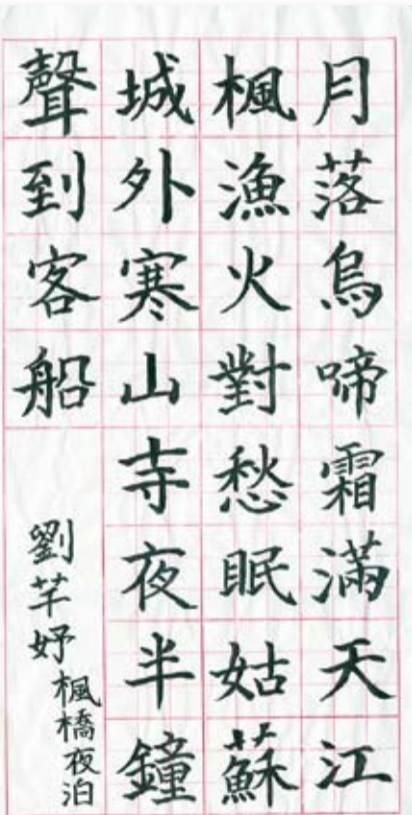 月落烏啼霜滿天江
楓漁火對愁眠姑蘇
城外寒山寺夜半鐘
聲到客船
劉芊妤
楓橋夜泊